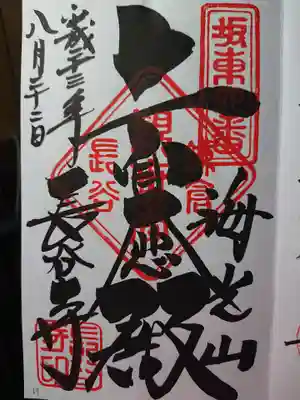 坂東四番
海光山
十一面大悲殿
鎌倉
長谷
長谷寺
平成二十三年
八月二十二日